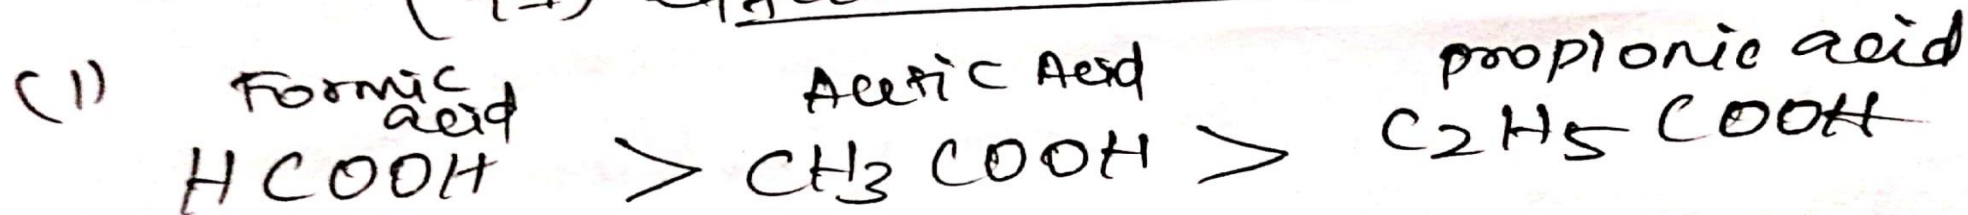 (1) Formic acid Acetic Acid propionic acid
HCOOH > CH3COOH > C2H5COOH